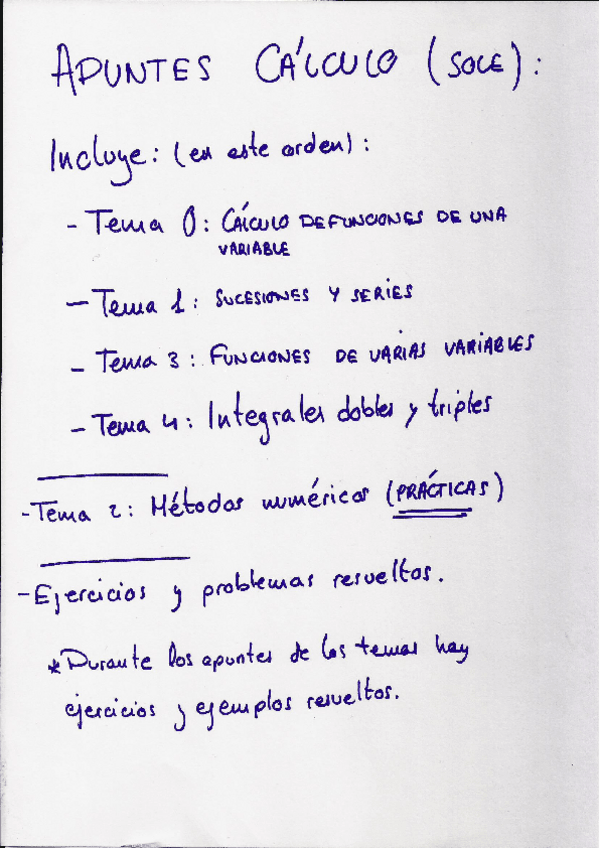 APUNTES CÁLCULO (SOLE):
Incluye: (en este orden):
- Tema 0: CÁLCULO DE FUNCIONES DE UNA
VARIABLE
- Tema 1: SUCESIONES Y SERIES
- Tema 3: FUNCIONES DE VARIAS VARIABLES
- Tema 4: Integrales dobles y triples
- Tema 2: Métodos numéricos (PRÁCTICAS)
- Ejercicios y problemas resueltos.
* Durante los apuntes de los temas hay
ejercicios y ejemplos resueltos.